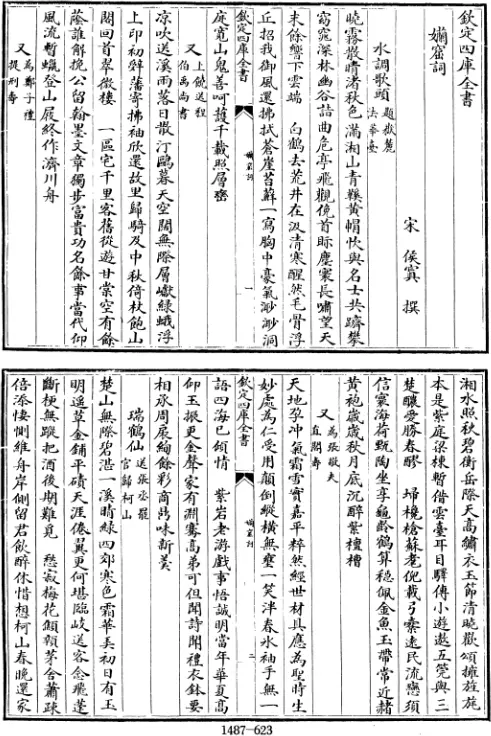 欽定四庫全書
嬾窟詞
宋 侯寘 撰
水調歌頭 題嶽麓法華臺
曉霧散晴渚秋色滿湘山青鞵黃帽忺與名士共躋攀
窈窕深林幽谷詰曲危亭飛觀俛首眎塵寰長嘯望天
末餘響下雲端 白鶴去荒井在汲清寒醒然毛骨浮
丘招我御風還拂拭蒼崖苔蘚一寫胸中豪氣渺渺洞
庭寬山鬼善呵護千載照層巒
又 上饒送程伯禹尚書
涼吹送溪雨落日散汀鷗暮天空闊無際層巘綠蛾浮
上印初辭藩寄拂袖欣還故里歸騎及中秋倚杖飽山
閣回首翠微樓 一區宅千里客舊從遊甘棠空有餘
蔭誰解挽公留翰墨文章獨步富貴功名餘事當代仰
風流暫蠟登山屐終作濟川舟
又 為鄭子禮提刑壽
欽定四庫全書
嬾窟詞
一
湘水照秋碧衡岳際天高繡衣玉節清曉歡頌擁旌旄
本是紫庭梁棟暫借雲臺耳目驛傳小遊遨五筦與三
楚醲愛勝春醪 埽欃槍蘇耄倪載弓櫜遠民流戀須
信寰海荷甄陶坐享龜齡鶴算穩佩金魚玉帶常近赭
黃袍歲歲秋月底沉醉紫檀槽
又 為張敬夫直閣壽
天地孕冲氣霜雪實嘉平粹然經世材具應為聖時生
妙處為仁受用顛倒縱橫無壅一笑泮春冰袖手無一
欽定四庫全書
嬾窟詞
二
語四海已傾情 紫岩老游戲事悟誠明當年華夏高
仰玉振更金聲家有淵騫高弟可但聞詩聞禮衣鉢要
相承周扆絢餘彩商鼎味新羹
瑞鶴仙 送張丞罷官歸柯山
楚山無際碧湛一溪晴綠四郊寒色霜華美初日有玉
明遥草金鋪平磧天涯倦翼更何堪臨岐送客念飛蓬
斷梗無蹤把酒後期難覓 愁寂梅花顦顇茅舍蕭疎
倍添悽惻維舟岸側留君飲醉休惜想柯山春晚還家
1487-623